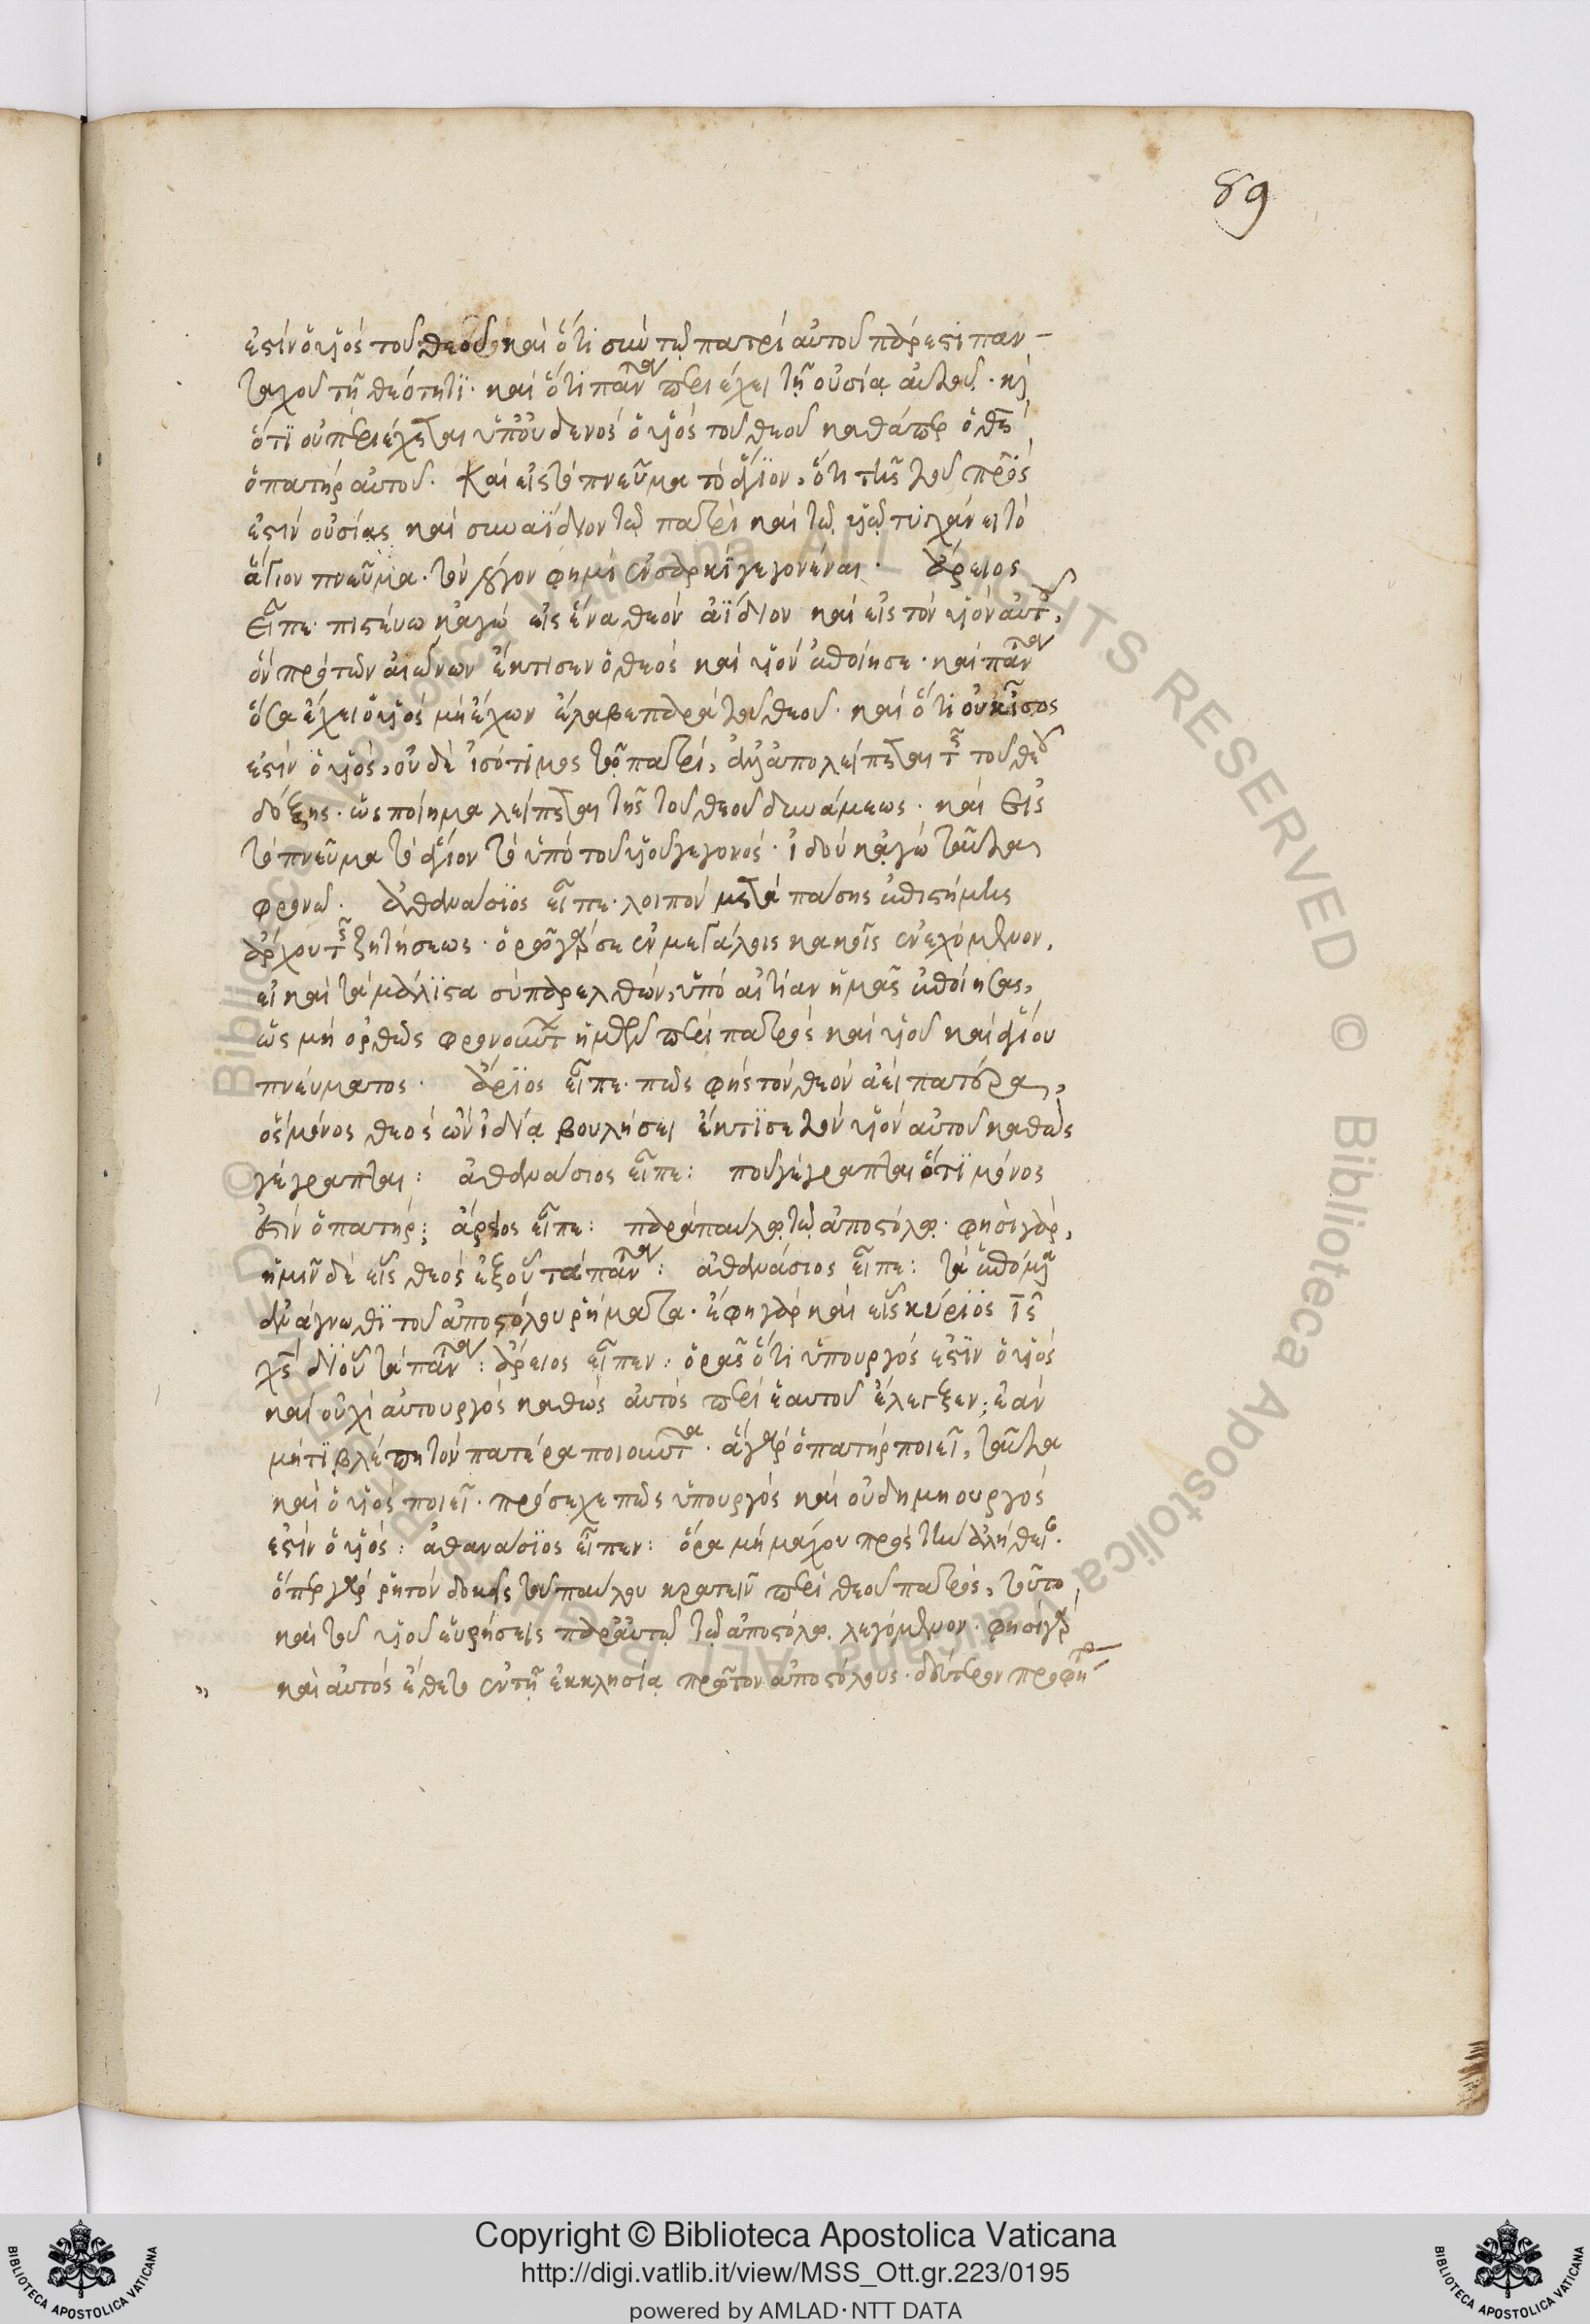 89
ἐστὶν ὁ υἱὸς τοῦ θεοῦ καὶ ὅτι σὺν τῷ πατρὶ αὐτοῦ πάρεστι παν-
ταχοῦ τῇ θεότητι· καὶ ὅτι πάντα περιέχει τῇ οὐσίᾳ αὐτοῦ· κ(αὶ)
ὅτι οὐ περιέχεται ὑπ' οὐδενὸς ὁ υἱὸς τοῦ θεοῦ καθάπερ ὁ θς
ὁ πατὴρ αὐτοῦ. Καὶ εἰς τὸ πνεῦμα τὸ ἅγιον, ὅτι τῆς τοῦ πρς
ἐστὶν οὐσίας καὶ συναΐδιον τῷ πατρὶ καὶ τῷ υἱῷ τυγχάνει τὸ
ἅγιον πνεῦμα. τὸν λόγον φημὶ ἐν σαρκὶ γεγονέναι· ἄρειος
εἶπε· πιστεύω κἀγὼ εἰς ἕνα θεὸν ἀΐδιον καὶ εἰς τὸν υἱὸν αὐτοῦ,
ὃν πρὸ τῶν αἰώνων ἔκτισεν ὁ θεὸς καὶ υἱὸν ἐποίησε· καὶ πάντα
ὅσα ἔχει ὁ υἱὸς μὴ ἔχων ἔλαβε παρὰ τοῦ θεοῦ· καὶ ὅτι οὐκ ἴσος
ἐστὶν ὁ υἱός, οὐδὲ ἰσότιμος τῷ πατρί, ἀλλ' ἀπολείπεται τῆς τοῦ θεοῦ
δόξης. ὡς ποίημα λείπεται τῆς τοῦ θεοῦ δυνάμεως· καὶ εἰς
τὸ πνεῦμα τὸ ἅγιον τὸ ὑπὸ τοῦ υἱοῦ γεγονός· ἰδοὺ κἀγὼ ταῦτα
φρονῶ. ἀθανάσιος εἶπε· λοιπὸν μετὰ πάσης ἐπιστήμης
ἄρχου τῆς ζητήσεως· ὁρῶ γάρ σε ἐν μεγάλοις κακοῖς ἐνεχόμενον,
εἰ καὶ τὰ μάλιστα σὺ παρελθών, ὑπὸ αἰτίαν ἡμᾶς ἐποίησας,
ὡς μὴ ὀρθῶς φρονοῦντ ἡμῶν περὶ πατρὸς καὶ υἱοῦ καὶ ἁγίου
πνεύματος· ἄρϊος εἶπε· πῶς φῂς τὸν θεὸν ἀεὶ πατέρα,
ὃς μόνος θεὸς ὢν ἰδίᾳ βουλήσει ἔκτισε τὸν υἱὸν αὐτοῦ καθὼς
γέγραπται: ἀθανάσιος εἶπε: ποῦ γέγραπται ὅτι μόνος
ἐστὶν ὁ πατήρ; ἄρειος εἶπε: παρὰ παύλῳ τῷ ἀποστόλῳ· φησὶ γάρ,
ἡμῖν δὲ εἷς θεὸς ἐξ οὗ τὰ πάντα: ἀθανάσιος εἶπε: τὰ ἑπόμενα
ἀνάγνωθι τοῦ ἀποστόλου ῥήματα· ἔφη γὰρ καὶ εἷς κύριος ις
χς δι' οὗ τὰ πάντα: ἄρειος εἶπεν: ὁρᾷς ὅτι ὑπουργός ἐστιν ὁ υἱὸς
καὶ οὐχὶ αὐτουργὸς καθὼς αὐτὸς περὶ ἑαυτοῦ ἔλεγξεν; ἐὰν
μή τι βλέπῃ τὸν πατέρα ποιοῦντα· ἃ γὰρ ὁ πατὴρ ποιεῖ, ταῦτα
καὶ ὁ υἱὸς ποιεῖ· πρόσεχε πῶς ὑπουργὸς καὶ οὐ δημηουργὸς
ἐστὶν ὁ υἱός: ἀθανάσιος εἶπεν: ὅρα μὴ μάχου πρὸς τὴν ἀλήθει.
ὅπερ γὰρ ῥητὸν δοκεῖς τοῦ παύλου κρατεῖν περὶ θεοῦ πατρός, τοῦτο
καὶ τοῦ υἱοῦ εὑρήσεις παρ' αὐτῷ τῷ ἀποστόλῳ λεγόμενον· φησὶ γὰρ
καὶ αὐτὸς ἔθετο ἐν τῇ ἐκκλησίᾳ πρῶτον ἀποστόλους· δεύτερον προφήτ
Copyright © Biblioteca Apostolica Vaticana
http://digi.vatlib.it/view/MSS_Ott.gr.223/0195
powered by AMLAD·NTT DATA